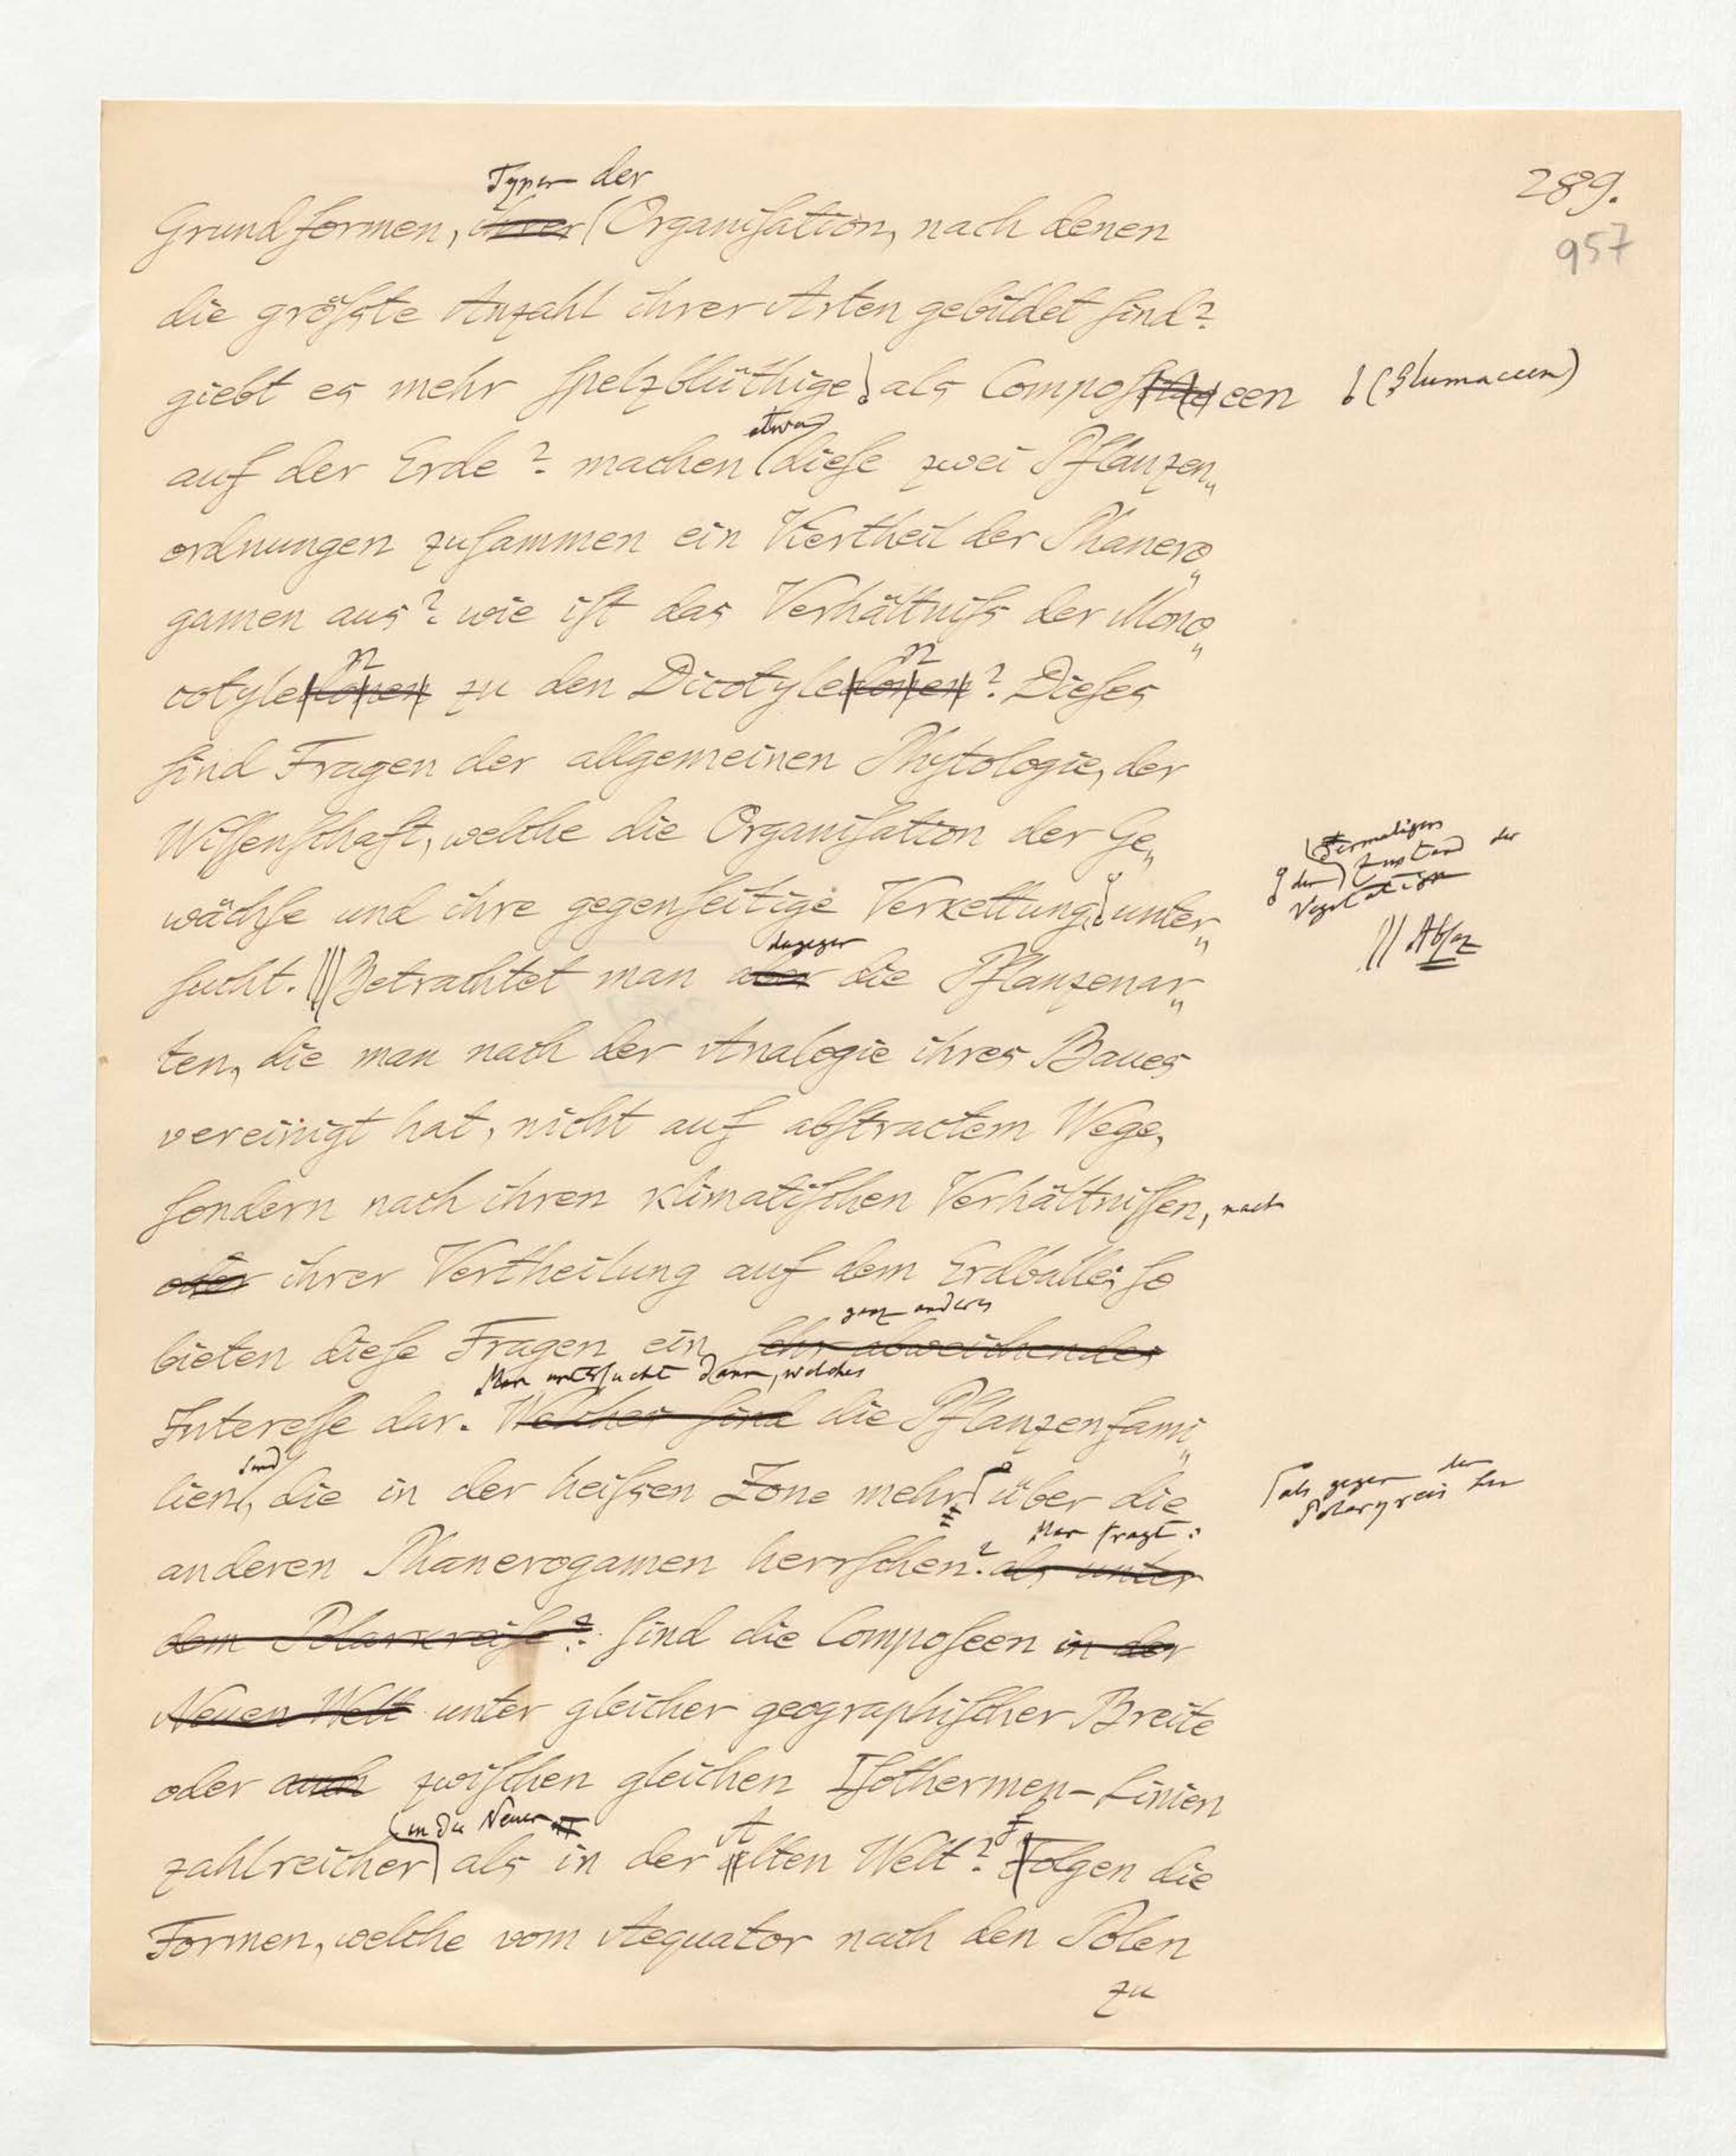 289.
957
Typen der
Grundformen, ihrer Organisation, nach denen
die größste Anzahl ihrer Arten gebildet sind?
giebt es mehr spelzblüthige als Composeen (Glumaceen)
etwa
auf der Erde? machen diese zwei Pflanzen„
ordnungen zusammen ein Viertheil der Phanero„
gamen aus? wie ist das Verhältniß der Mono„
n n
cotyledonen zu den Dicotyledonen? Dieses
sind Fragen der allgemeinen Phytologie, der
Wissenschaft, welche die Organisation der Ge„
wächse und ihre gegenseitige Verkettung, unter„
den dermaligen
Zustand der
Vegetation
// Absaz
dagegen
sucht. Betrachtet man aber die Pflanzenar„
ten, die man nach der Analogie ihres Baues
vereinigt hat, nicht auf abstractem Wege,
sondern nach ihren klimatischen Verhältnissen, nach
oder ihrer Vertheilung auf dem Erdballe; so
ganz anderes
bieten diese Fragen ein sehr abweichendes
Man untersucht dann, welches
Interesse dar. Welches sind die Pflanzenfami„
sind
lien, die in der heißen Zone mehr über die
als gegen den
Polarkreis hin
Man fragt:
anderen Phanerogamen herrschen? als unter
dem Polarkreise? sind die Composeen in der
Neuen Welt unter gleicher geographischer Breite
oder auch zwischen gleichen Isothermen-Linien
in der Neuen A f
zahlreicher als in der alten Welt? Folgen die
Formen, welche vom Aequator nach den Polen
zu